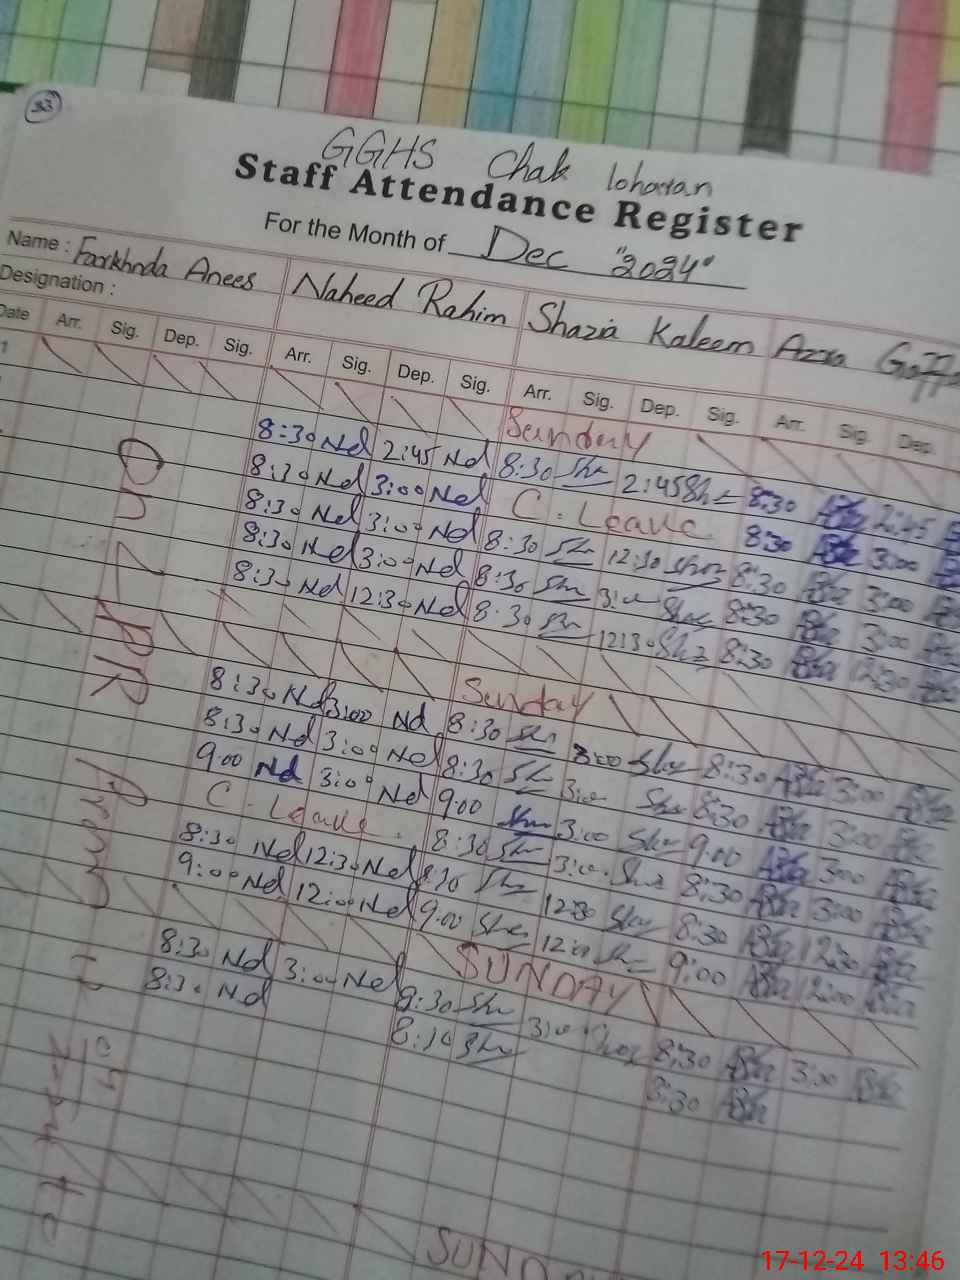 33
GGHS Chak lohatan
Staff Attendance Register
For the Month of Dec "2024"
Name : Farkhnda Anees Naheed Rahim Shazia Kaleem Azra
Designation :
Date Arr. Sig. Dep. Sig. Arr. Sig. Dep. Sig. Arr. Sig. Dep. Sig. Arr. Sig. Dep.
1 Sunday
8:30 Nd 2:45 Nd 8:30 Sha 2:45 Sh 8:30 2:45
8:30 Nd 3:00 Nd C. Leave 8:30 3:00
8:30 Nd 3:00 Nd 8:30 Sha 12:30 Shaz 8:30 3:00
8:30 Nd 3:00 Nd 8:30 Sha 3:00 Shaz 8:30 3:00
8:30 Nd 12:30 Nd 8:30 Sha 12:30 Sha 8:30 12:30
Sunday
8:30 Nd 3:00 Nd 8:30 Sha 3:00 Sha 8:30 3:00
8:30 Nd 3:00 Nd 8:30 Sh 3:00 Sha 8:30 3:00
9:00 Nd 3:00 Nd 9:00 Sha 3:00 Sha 9:00 3:00
C. Leave. 8:30 Sha 3:00 Sha 8:30 3:00
8:30 Nd 12:30 Nd 8:30 Sha 12:30 Sha 8:30 12:30
9:00 Nd 12:00 Nd 9:00 Sha 12:00 Sh 9:00 12:00
SUNDAY
8:30 Nd 3:00 Nd 8:30 Sha 3:00 Shaz 8:30 3:00
8:30 Nd 8:30 Sha 8:30
On LPR
17-12-24 13:46